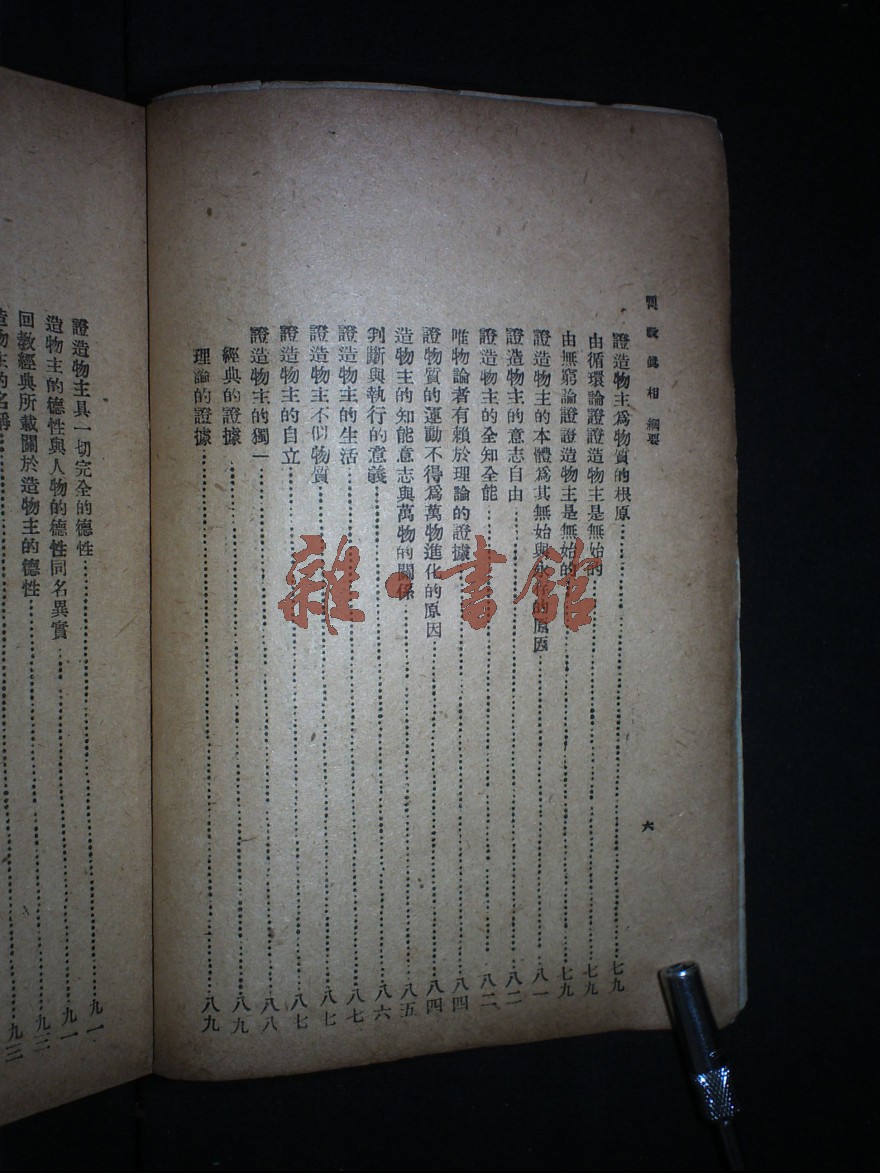 回教眞相 綱要
六
證造物主爲物質的根原 七九
由循環論證證造物主是無始的 七九
由無窮論證證造物主是無始的 七九
證造物主的本體爲其無始與永存的原因 八一
證造物主的意志自由 八二
證造物主的全知全能 八二
唯物論者有賴於理論的證據 八四
證物質的運動不得爲萬物進化的原因 八四
造物主的知能意志與萬物的關係 八五
判斷與執行的意義 八六
證造物主的生活 八七
證造物主不似物質 八七
證造物主的自立 八七
證造物主的獨一 八八
經典的證據 八九
理論的證據 八九
證造物主具一切完全的德性 九一
造物主的德性與人物的德性同名異實 九一
回教經典所載關於造物主的德性 九二
造物主的名稱 九三
雜·書館